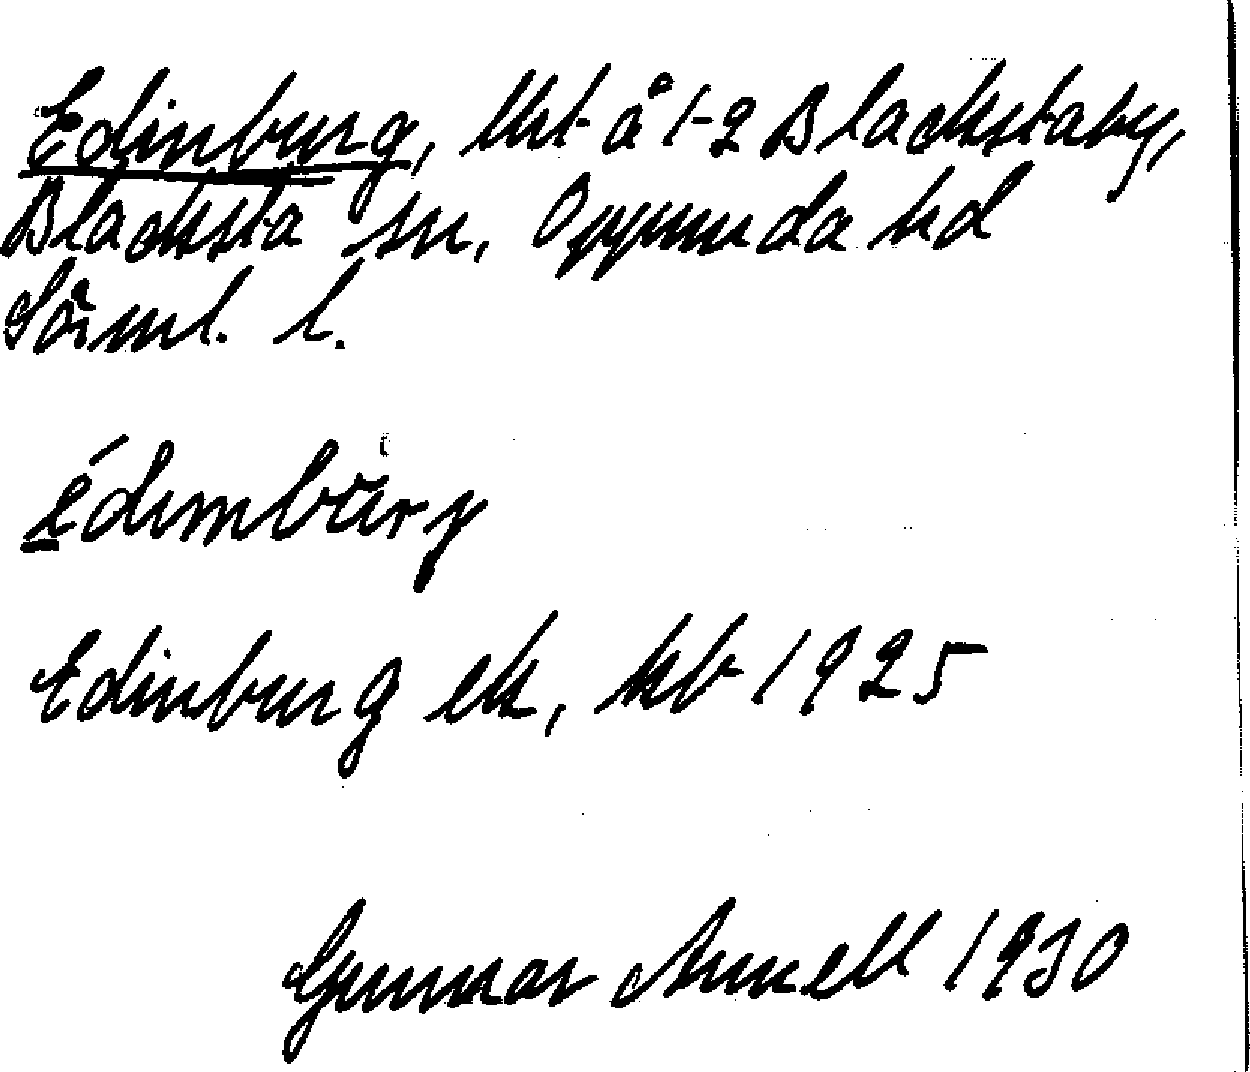 Edinburg, lht å 1-2 Blackstaby,
Blacksta sn, Oppunda hd
Sörml. l.
édimbürg
Edinburg ek, kb 1925
Gunnar Annell 1930